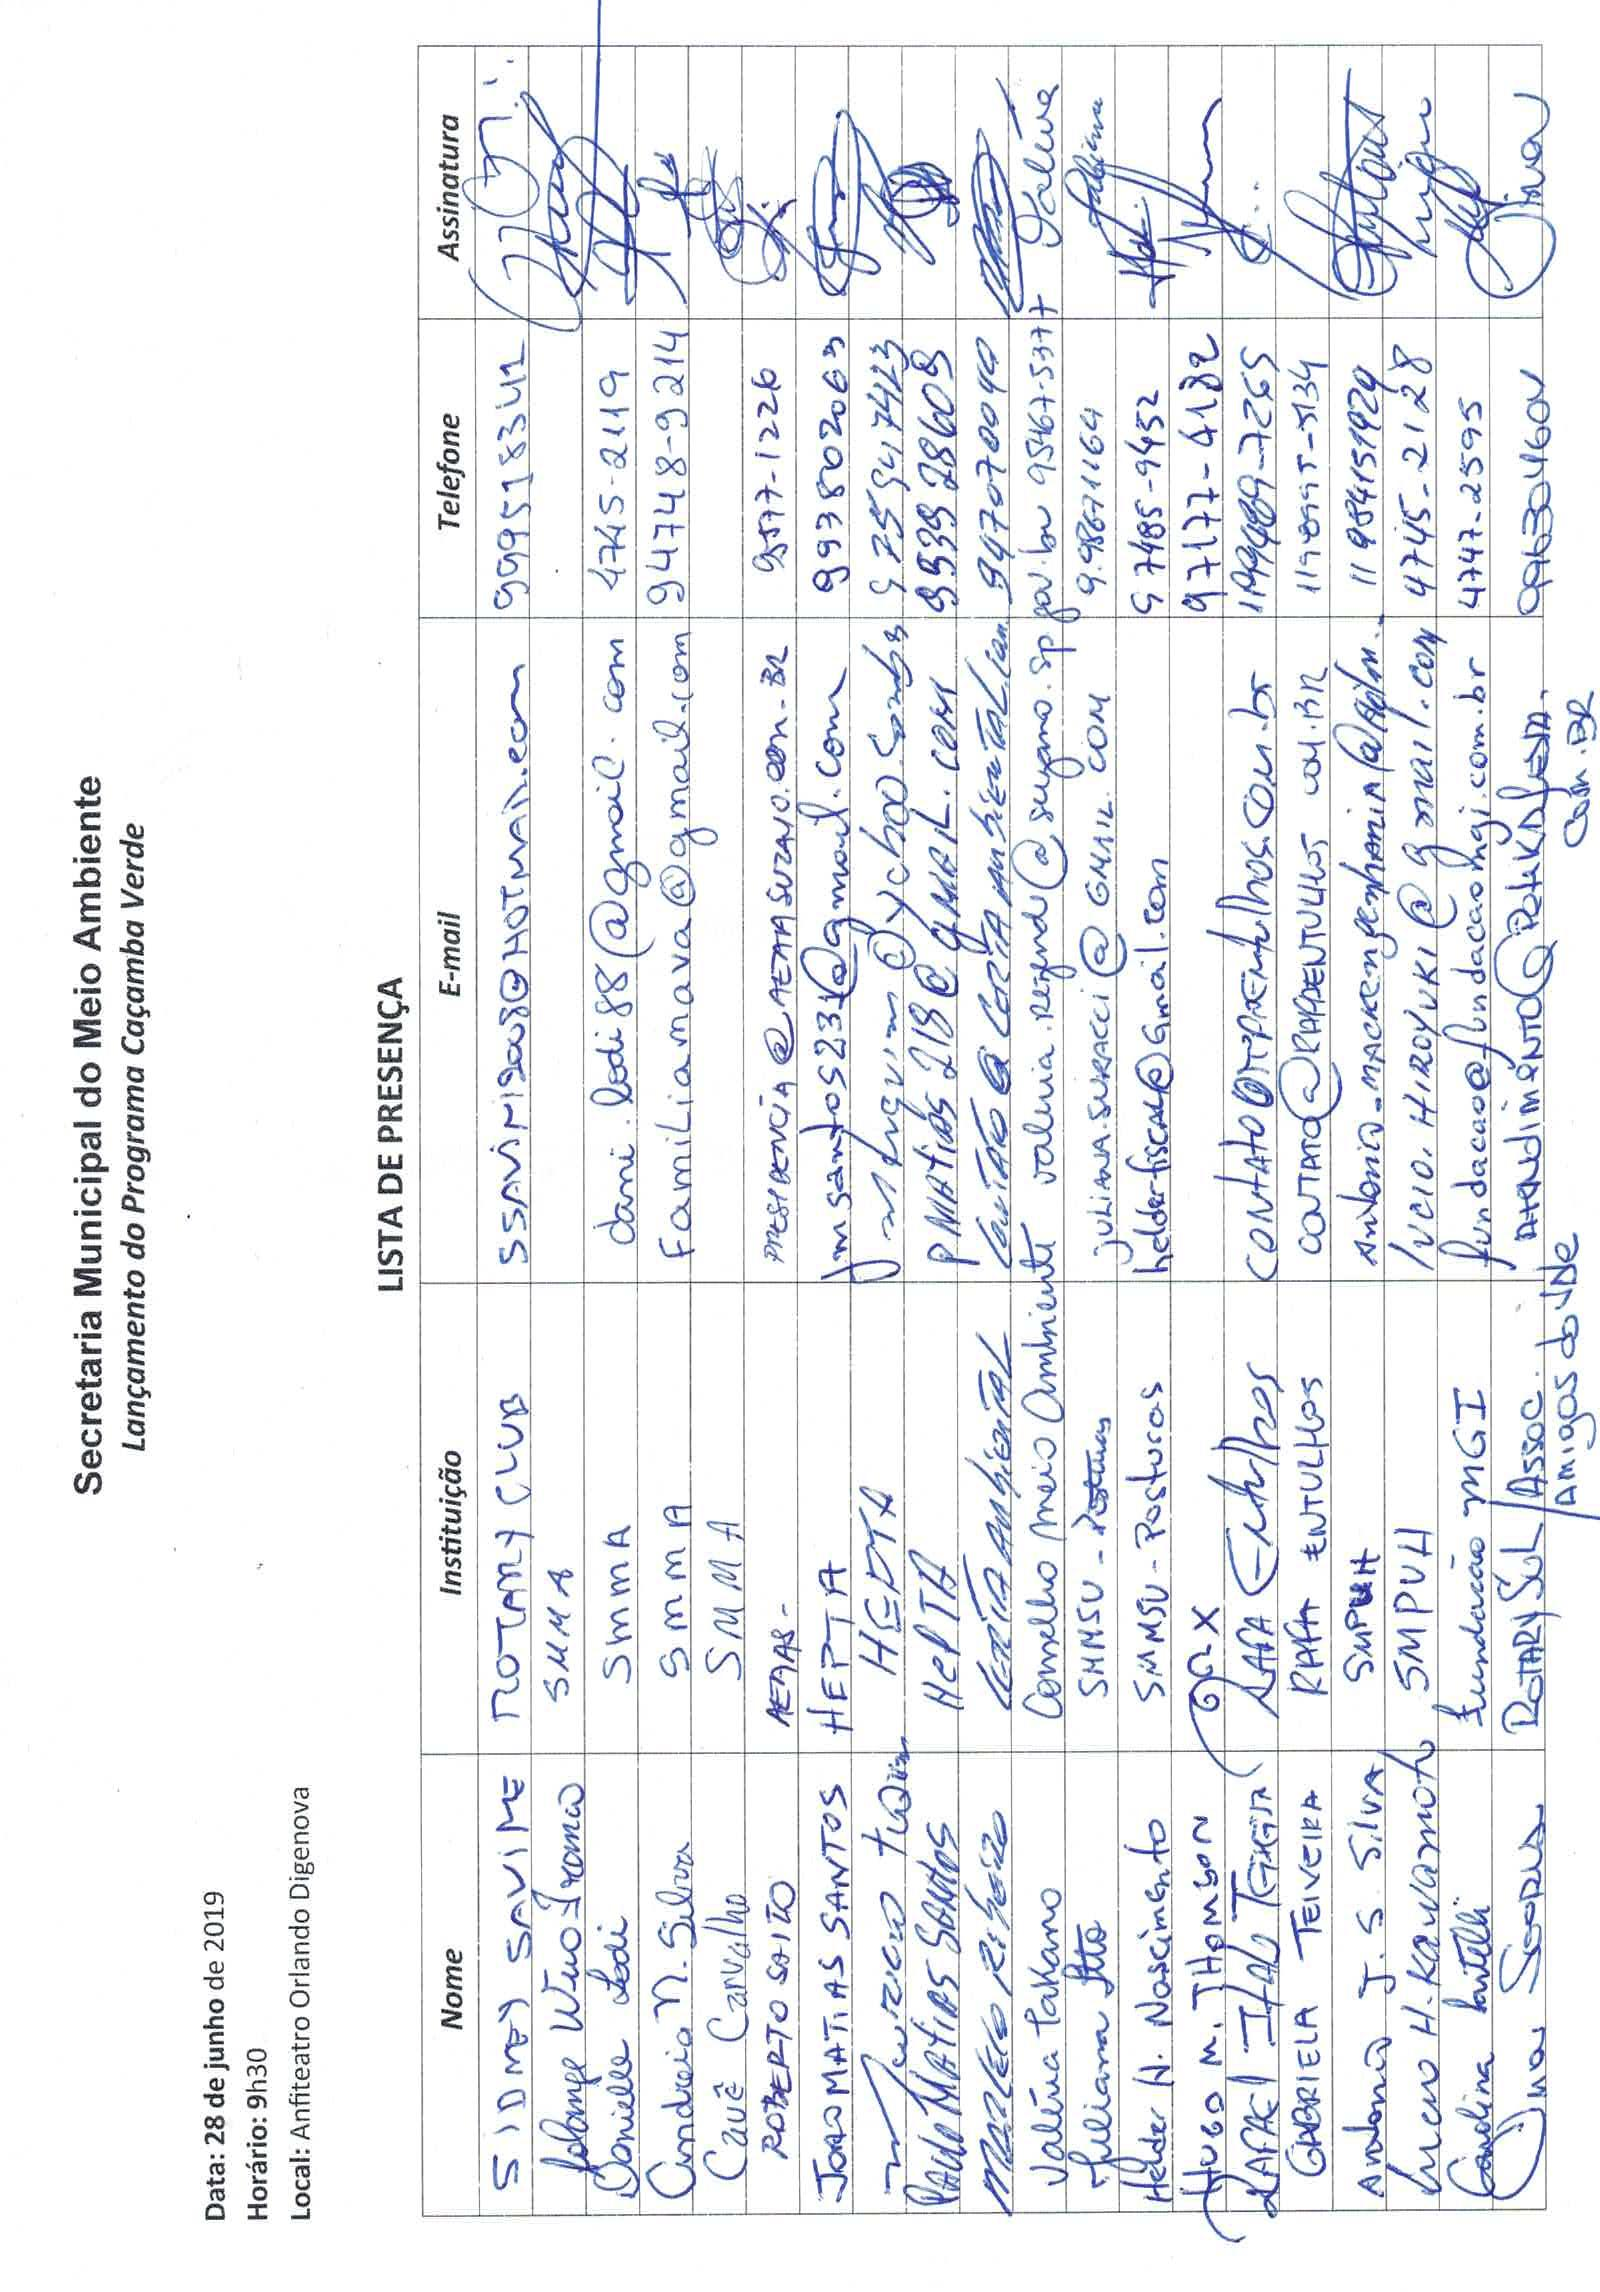 Secretaria Municipal do Meio Ambiente
Lançamento do Programa Caçamba Verde
Data: 28 de junho de 2019
Horário: 9h30
Local: Anfiteatro Orlando Digenova
LISTA DE PRESENÇA
Nome Instituição E-mail Telefone Assinatura
SIDNEY SAVINE ROTARY CLUB SSAVINI2008@HOTMAIL.com 999518342
Solange Wuo Franco SMMA
Danielle Lodi SMMA dani.lodi88@gmail.com 4745-2119
Andreia N. Silva SMMA familiamava@gmail.com 94748-9214
Cauê Carvalho SMMA
ROBERTO SAITO AEAAS- PRESIDENCIA@AEAASUZANO.COM.BR 9577-1226
JOAO MATIAS SANTOS HEPTA jmsantos237@gmail.com 993802003
HEPTA
PAULO MATIAS SANTOS HEPTA PMATIAS218@GMAIL.COM 993928609
MARCELO RIBEIRO CERTA AMBIENTAL CONTATO@CERTAAMBIENTAL.COM 947070040
Valéria Takano Conselho Meio Ambiente valeria.rezende@suzano.sp.gov.br 95467-5377 Valéria
Juliana SMMSU - Posturas JULIANA.SURACCI@GMAIL.COM 9.98671164 Juliana
Helder N. Nascimento SMMSU - Posturas helderfiscal@gmail.com 97485-9452
HUGO M. THOMSON 97177-4182
RAFAEL ITALO RAFA Entulhos
GABRIELA TEIVEIRA RAFA ENTULHOS CONTATO@RAFAENTULHOS.COM.BR
Antonio J. S. SILVA SMPUH 11984151929
Lucio H. Kawamoto SMPUH lucio.HIROYUKI@gmail.com 4745-2128
Carolina Fundação MGI fundacao@fundacaomgi.com.br 4747-2595
ROTARY SUL / ASSOC.
Amigos do
COM.BR